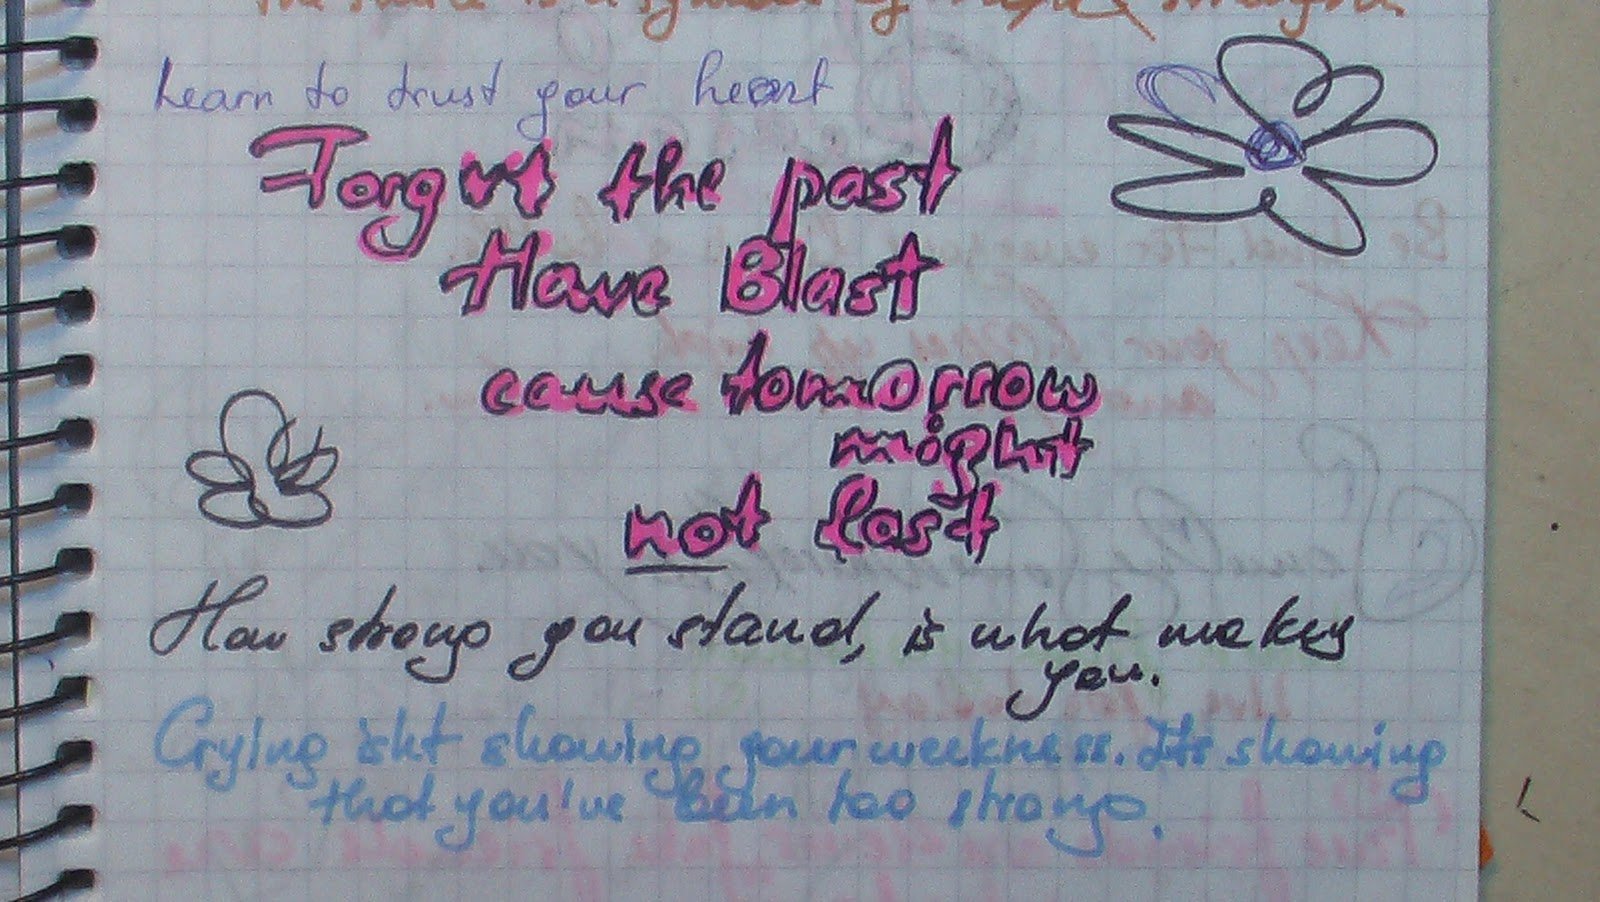 the snake is a symbol of
Learn to trust your heart
Forget the past
Have Blast
cause tomorrow
might
not last
How strong you stand, is what makes
you.
Crying isnt showing your weekness. Its showing
that you've been too strong.